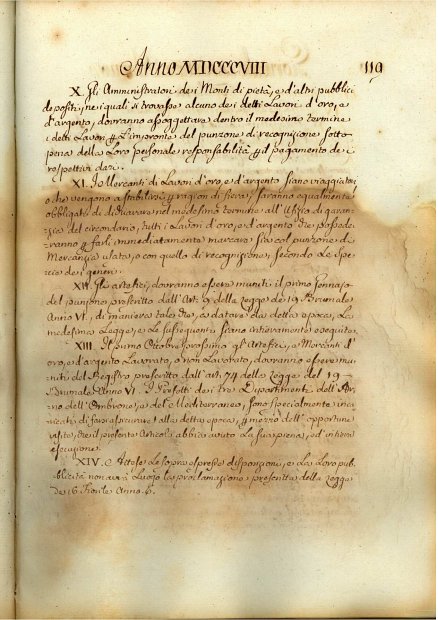 Anno MDCCCVIII 119
X. Gli Amministratori dei Monti di pietà, e d'altri pubblici
depositi, nei quali si trovasse alcuno dei detti Lavori d'oro, e
d'argento, dovranno assoggettare dentro il medesimo termine
i detti Lavori all'impronte del punzone di recognizione sotto
pena della Loro personale responsabilità il pagamento dei
respettivi dazi.
XI. I Mercanti di Lavori d'oro, e d'argento siano viaggiatori,
o che vengono a stabilirsi ragion di fiera, saranno egualmente
obbligati di dichiarare nel medesimo termine all'Ufizio di garan-
zia del circondario, tutti i Lavori d'oro, e d'argento che possede-
ranno farli immediatamente marcare sia col punzone di
Mercanzia usato, o con quello di recognizione, secondo Le spe-
cie dei generi.
XII. Gli artefici, dovranno essere muniti il primo Gennajo
del punzone prescritto dall'Art. 9 della Legge de 19 Brumale
Anno VI, di maniera tale che, a datare da detta epoca, La
medesima Legge, e Le susseguenti siano intieramente eseguite.
XIII. Il primo Ottobre prossimo gli Artefici, e Mercanti d'
oro, e d'argento Lavorato, o non Lavorato, dovranno essere mu-
niti del Registro prescritto dall'art. 74 della Legge del 19
Brumale Anno VI. I Prefetti dei tre Dipartimenti dell'Ar-
no dell'Ombrone, e del Mediterraneo, sono specialmente in-
caricati di farsi assicurare alla detta epoca, mezzo dell'opportune
visite, che il presente Articolo abbia avuto La sua piena, ed intiera
esecuzione.
XIV. Attese Le sopra espresse disposizioni, e La Loro pub-
blicità non avrà Luogo La proclamazione prescritta della Legge
de 16 Fiorile Anno 6.